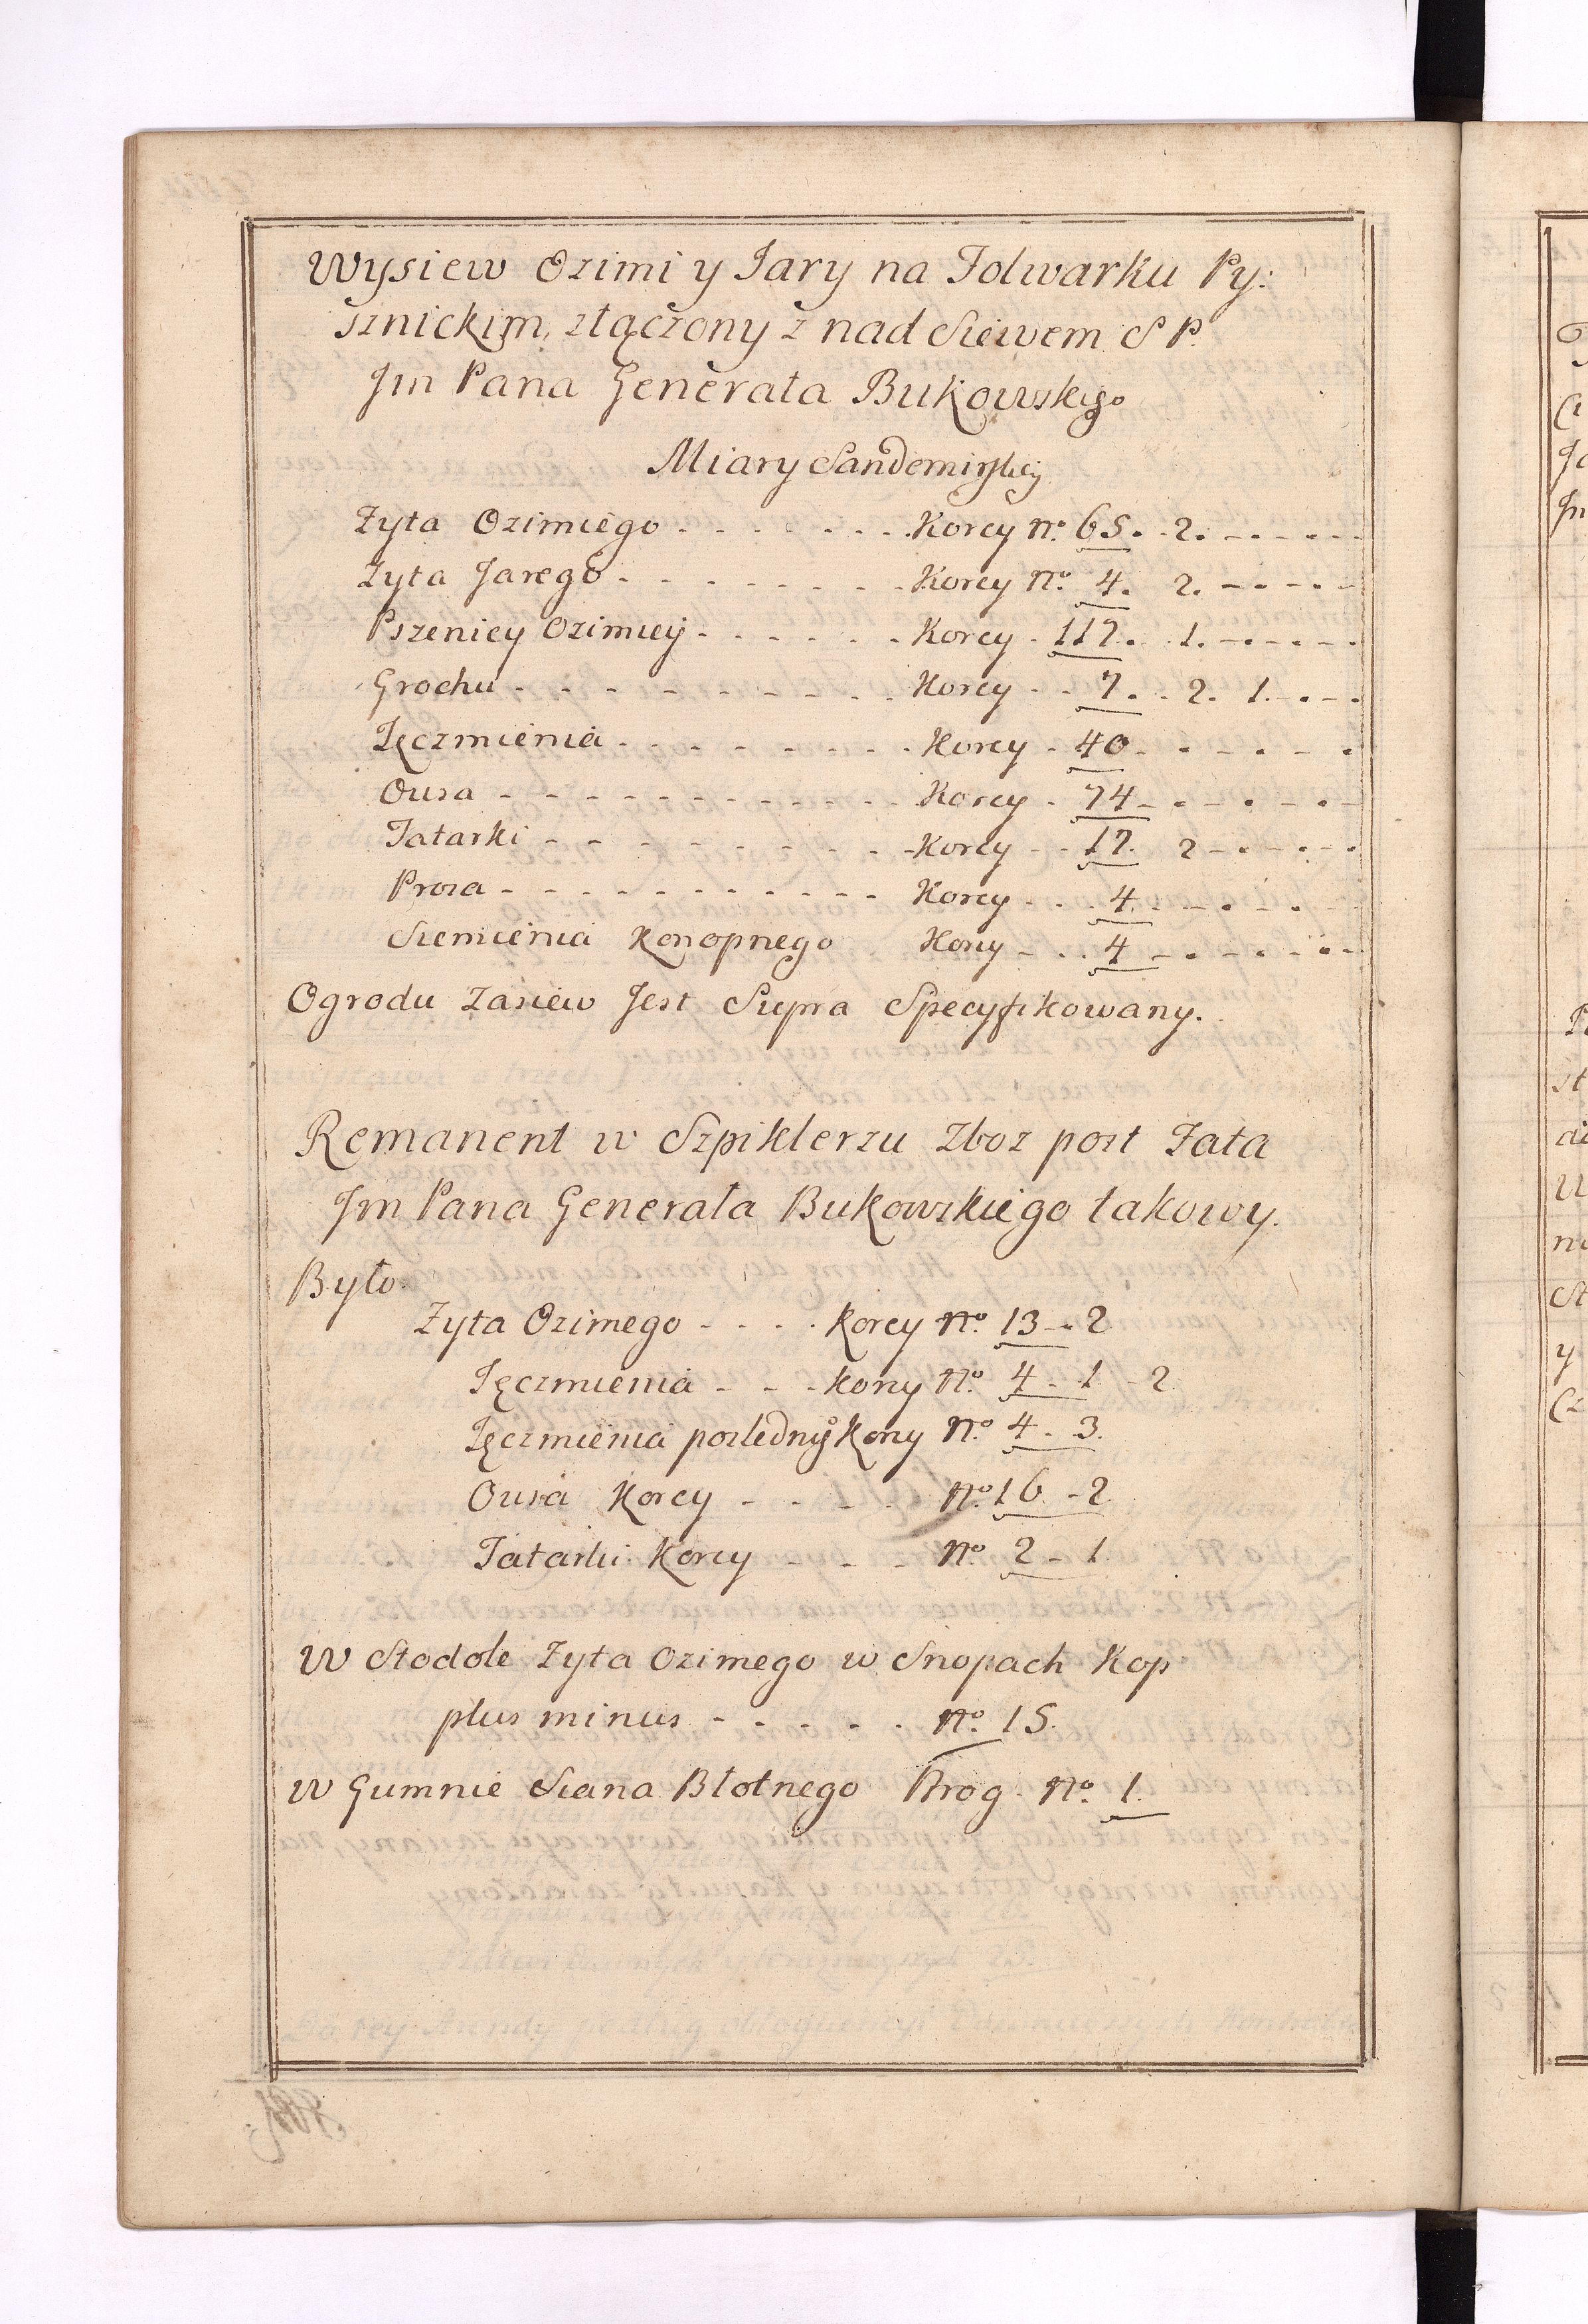 Wysiew Ozimi y Jary na Folwarku Py:
sznickim, złączony z nad Siewem S P.
Jm Pana Generała Bukowskiego
Miary Sandomirskiy
Zyta Ozimiego - - - - - - - Korcy no. 65. - 2. - - - - -
Zyta Jarego - - - - - - - Korcy No. 4. 2. - - - - -
Pszenicy Ozimiey - - - - - - Korcy - 117. 1. - - - - -
Grochu - - - - - - - - - Korcy - - 7. - 2. 1. - - -
Jęczmienia - - - - - - - - Korcy - 40 - - - - - -
Owsa - - - - - - - - - - - Korcy - 74 - - - - - -
Tatarki - - - - - - - - - Korcy - - 17. 2 - - - - -
Prosa - - - - - - - - - - - Korcy - - - 4. - - - - -
Siemienia Konopnego Korcy - - - 4 - - - - - -
Ogrodu Zasiew Jest Supra Specyfikowany.
Remanent w Szpiklerzu Zboz post Fata
Jm Pana Generała Bukowskiego takowy.
Było.
Zyta Ozimego - - - - Korcy No. 13 - 2
Jęczmienia - - - Korcy No. 4 - 1 - 2
Jęczmienia poslednij Korcy No. 4 - 3.
Owsa Korcy - - - - No. 16 - 2
Tatarki Korcy - - - No. 2 - 1
W Stodole Zyta Ozimego w Snopach Kop
plus minus - - - - - no. 15.
W Gumnie Siana Błotnego Brog. No. 1.